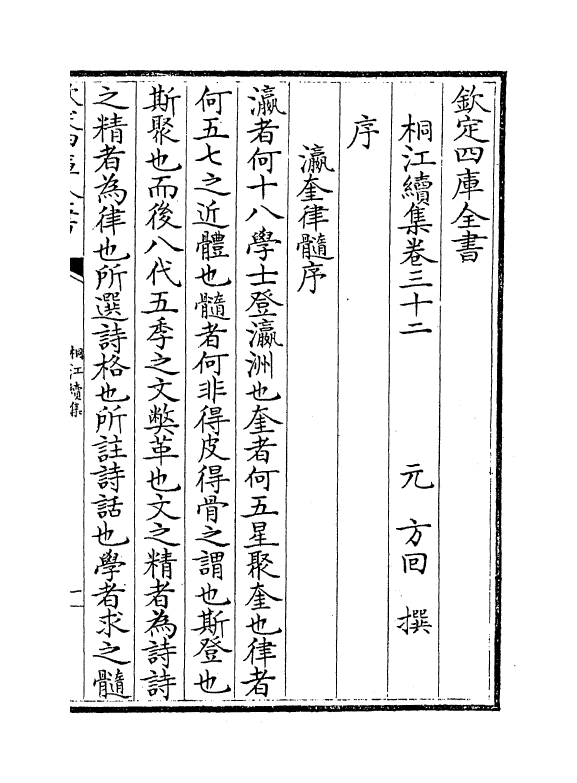 欽定四庫全書
桐江續集卷三十二　元　方回　撰
序
瀛奎律髓序
瀛者何十八學士登瀛洲也奎者何五星聚奎也律者
何五七之近體也髓者何非得皮得骨之謂也斯登也
斯聚也而後八代五季之文獘革也文之精者為詩詩
之精者為律也所選詩格也所註詩話也學者求之髓
桐江續集
一